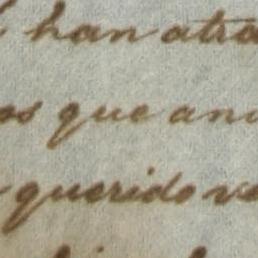 han atra
os que an
querido ve